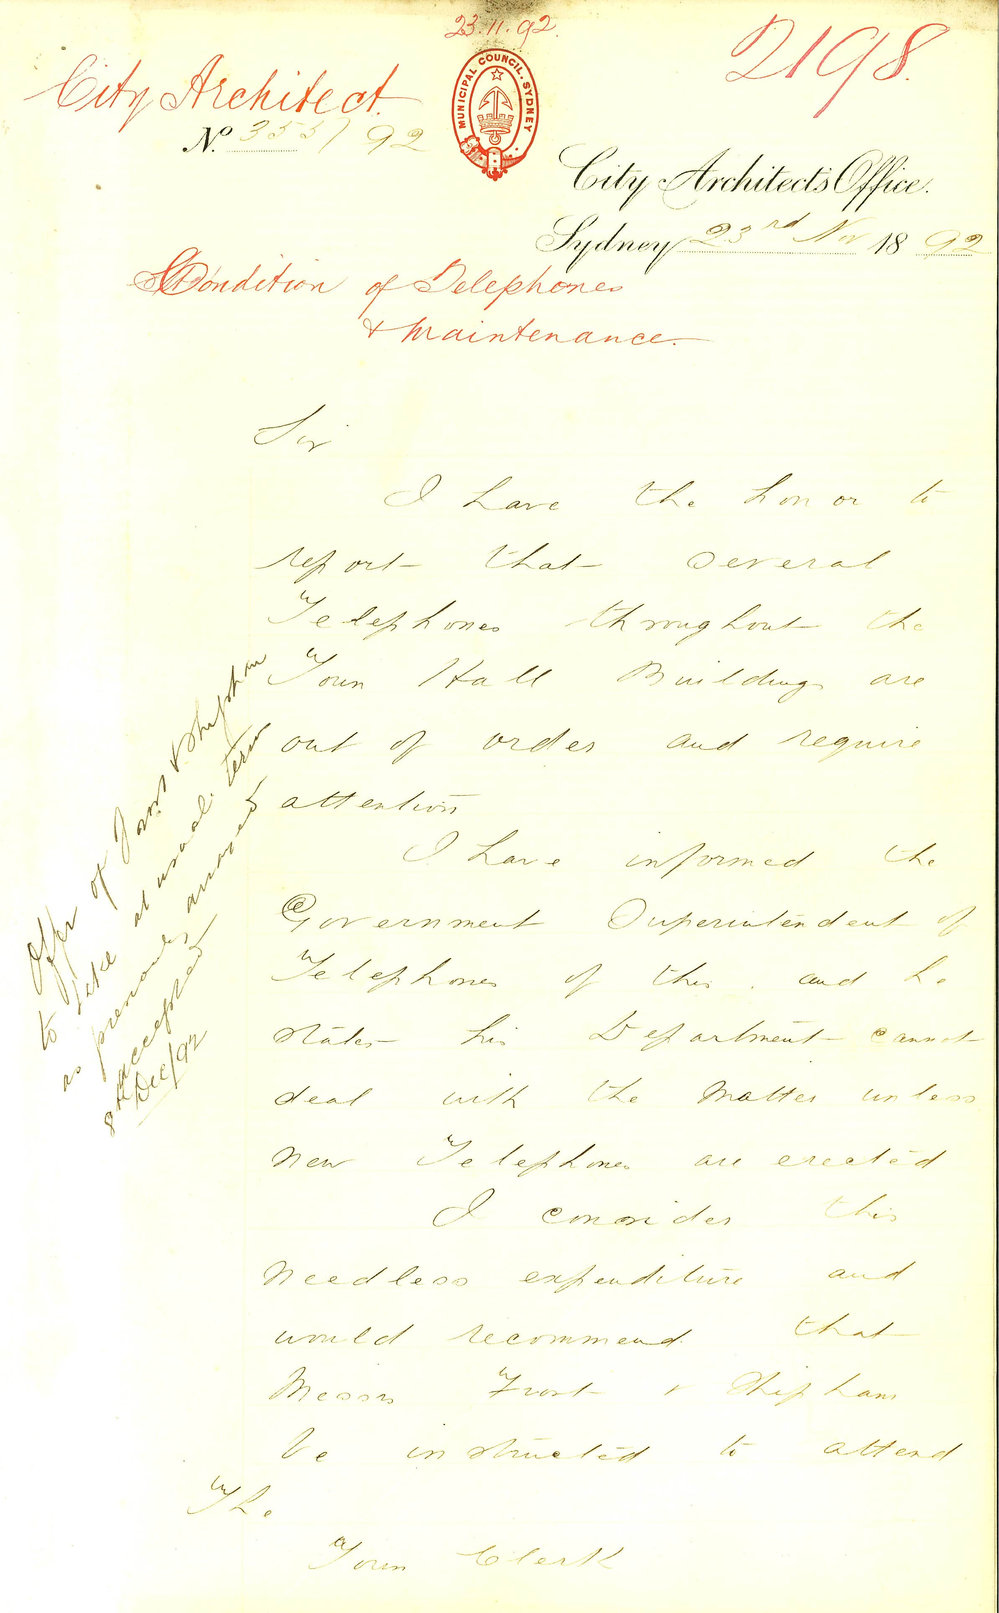 23.11.92
2198.
City Architect
MUNICIPAL COUNCIL. SYDNEY
No. 355/92
City Architects Office.
Sydney 23rd Nov 1892
Condition of Telephones
& Maintenance.
Sir
I have the honor to
report that several
Telephones throughout the
Town Hall Buildings are
out of order and require
attention
I have informed the
Government Superintendent of
Telephones of this and he
states his Department cannot
deal with the Matter unless
new Telephones are erected
I consider this
needless expenditure and
would recommend that
Messrs Frost & Shipham
be instructed to attend
The
Town Clerk
Offer of Frost & Shipham
to take at usual terms
as previously arranged
accepted
8th Dec/92